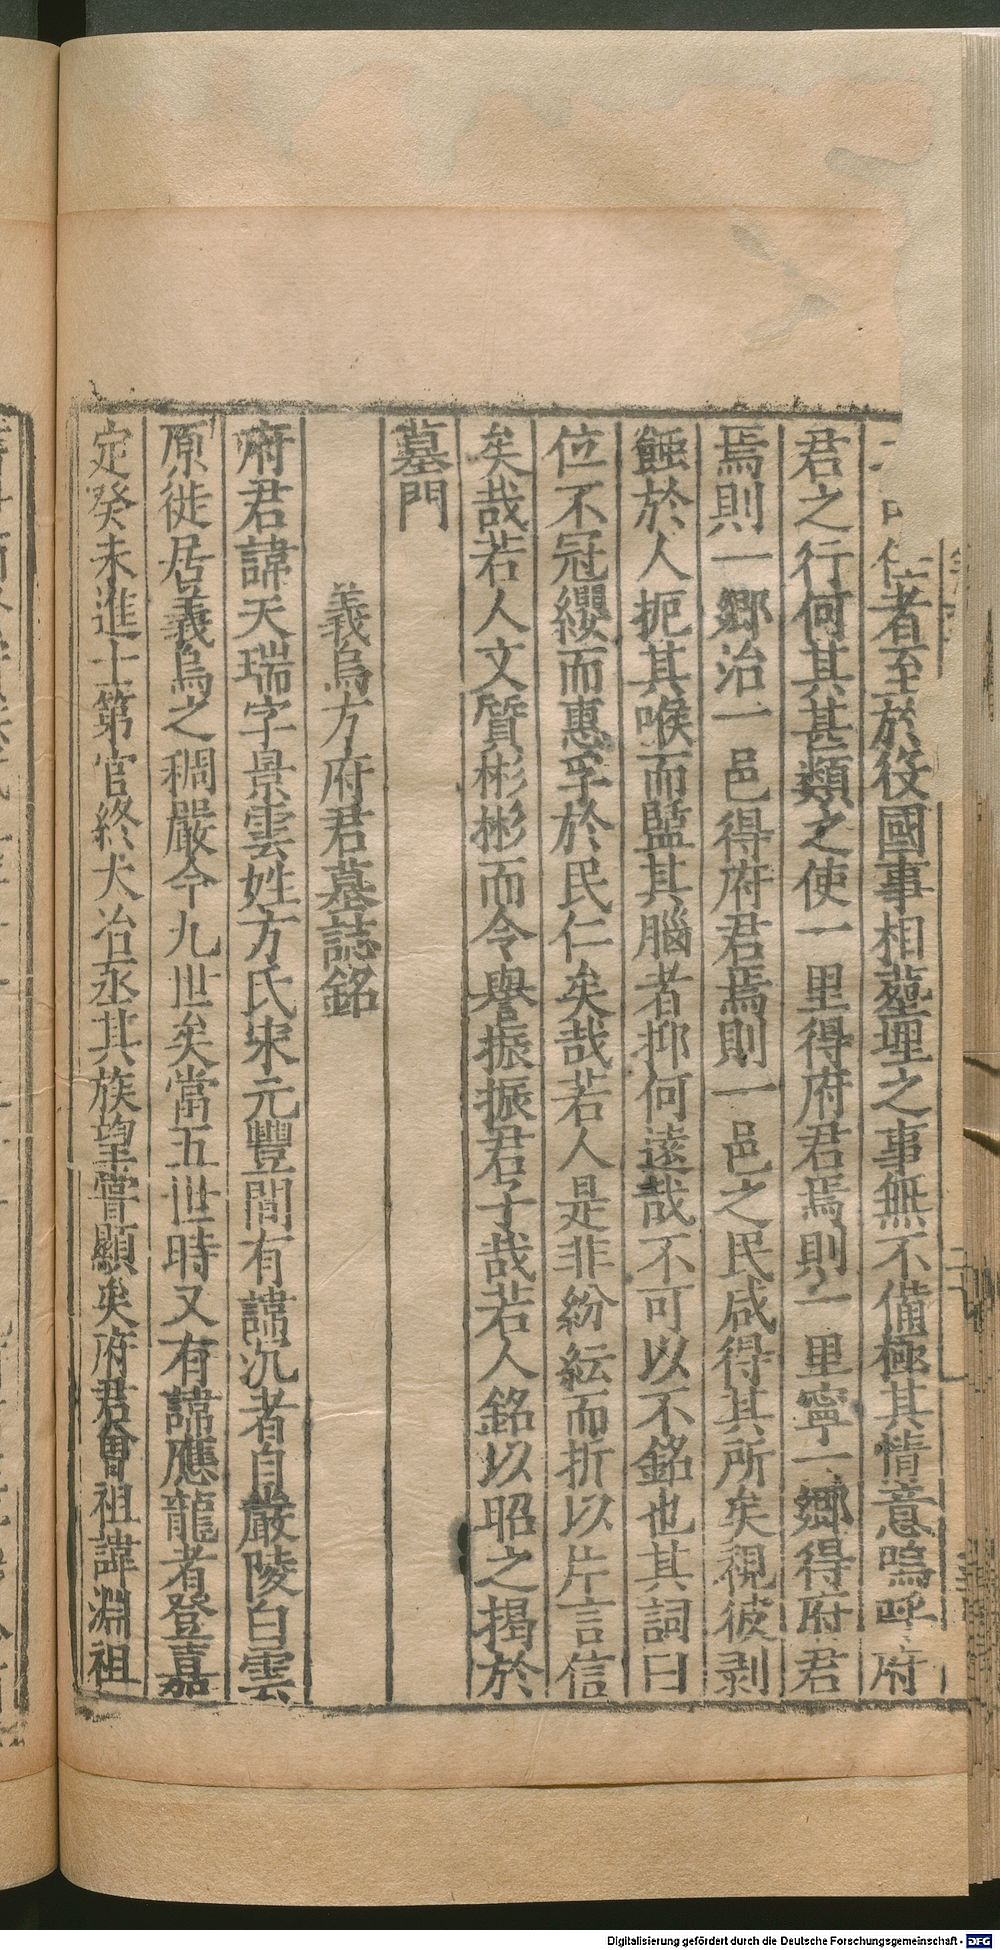 者至於役國事相蠱埋之事無不備極其情意嗚呼府
君之行何其甚類之使一里得府君焉則一里寧一鄉得府君
焉則一鄉治一邑得府君焉則一邑之民咸得其所矣視彼剥
蝕於人扼其喉而盬其腦者抑何遠哉不可以不銘也其詞曰
位不冠纓而惠孚於民仁矣哉若人是非紛紜而折以片言信
矣哉若人文質彬彬而令譽振振君子哉若人銘以昭之揭於
墓門
義烏方府君墓誌銘
府君諱天瑞字景雲姓方氏宋元豐間有諱沉者自嚴陵白雲
原徙居義烏之稠嚴今九世矣當五世時又有諱應龍者登嘉
定癸未進士第官終大冶丞其族望甞顯矣府君曾祖諱淵祖
Digitalisierung gefördert durch die Deutsche Forschungsgemeinschaft - DFG